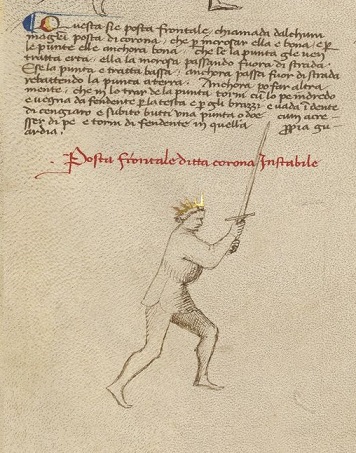 Questa sie posta frontale chiamada dalchun
magistri posta di corona, che per incrosar ella e bona, e per
le punte ell'e anchora bona, che se la punta gle uen
tratta erta, ella la incrosa passando fuora di strada.
E se la punta e tratta bassa, anchora passa fuor di strada
rebattendo la punta a terra. Anchora po far altra
mente, che in lo trar de la punta torni cum lo pe indredo
e uegna da fendente per la testa e per gli brazzi e uada in dente
di cengiaro e subito butti una punta o doe cum acre-
sser di pe e torni di fendente in quella
ppia guardia.
Posta frontale ditta corona Instabile